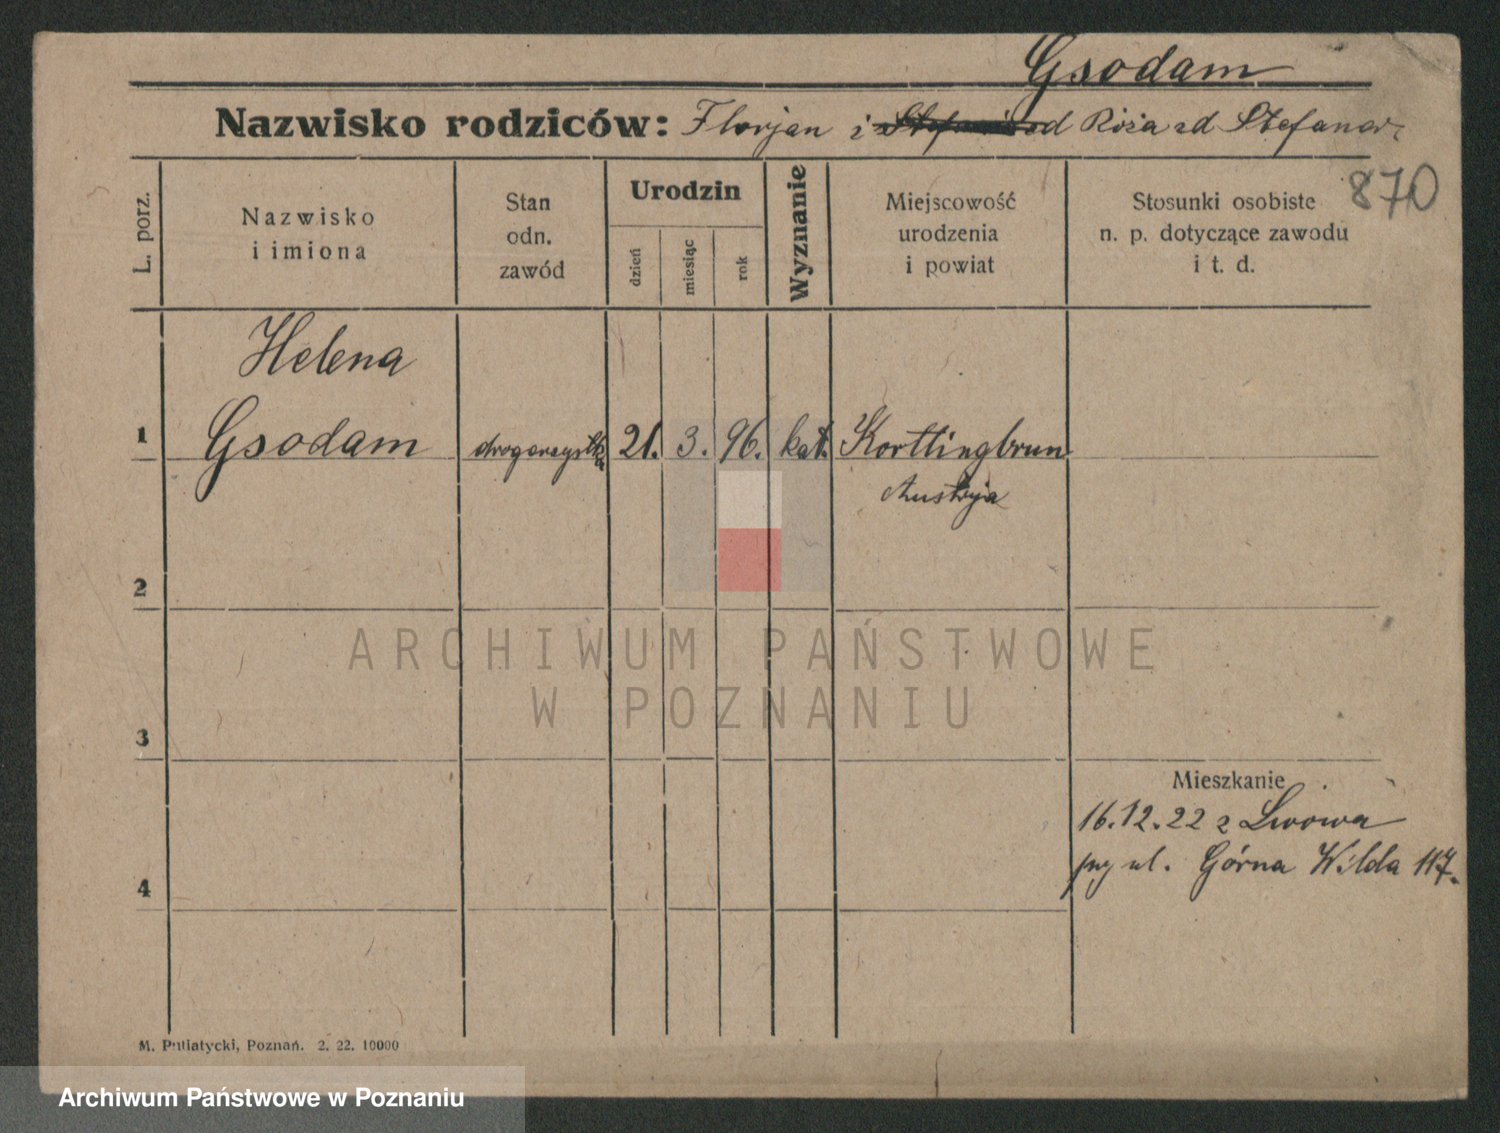 Gsodam
Nazwisko rodziców: Florjan i Róża zd Stefaner
870
L. porz.
Nazwisko
i imiona
Stan
odn.
zawód
Urodzin
dzień
miesiąc
rok
Wyznanie
Miejscowość
urodzenia
i powiat
Stosunki osobiste
n. p. dotyczące zawodu
i t. d.
Helena
1 Gsodam drogerzystka 21. 3. 96. kat. Kottlingbrun
Austrja
2
ARCHIWUM PAŃSTWOWE
W POZNANIU
3
Mieszkanie
16.12.22 z Lwowa
przy ul. Górna Wilda 117.
4
M. Putiatycki, Poznań. 2. 22. 10000
Archiwum Państwowe w Poznaniu